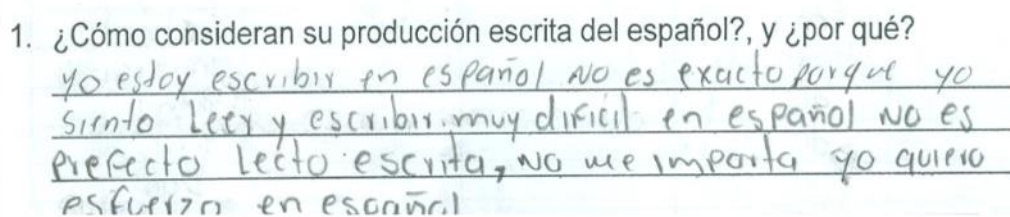 1. ¿Cómo consideran su producción escrita del español?, y ¿por qué?
yo estoy escribir en español no es exacto porque yo
siento Leer y escribir muy dificil en español no es
prefecto lecto escrita, no me importa yo quiero
esfuerzo en español